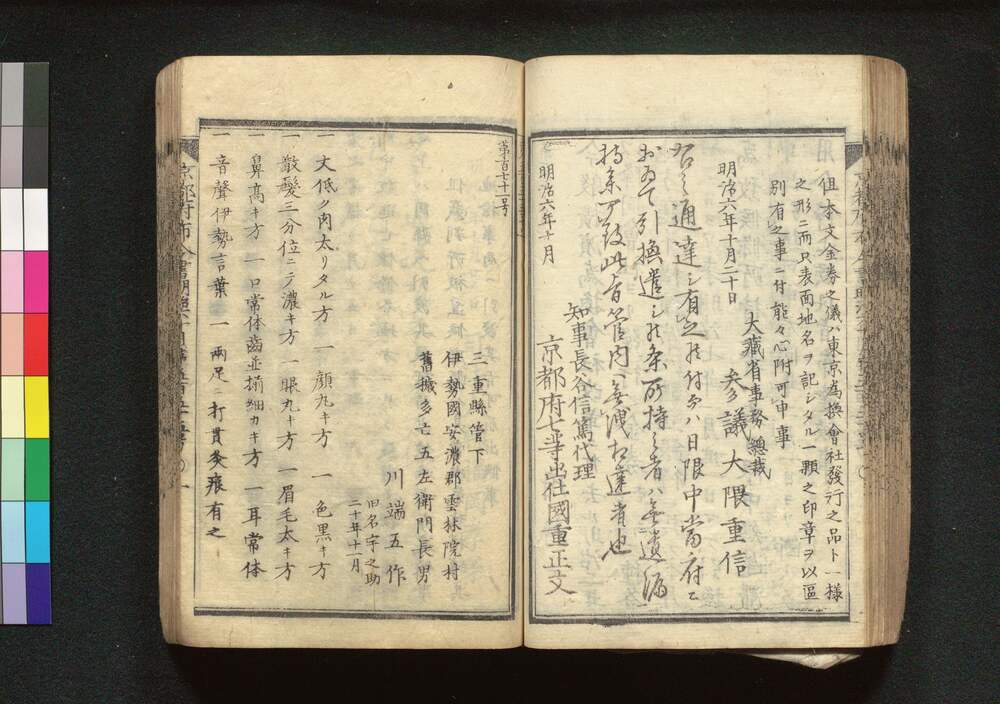 但本文金券之儀ハ東京為換會社發行之品ト一様
之形ニ而只表面地名ヲ記シタル一顆之印章ヲ以區
別有之事ニ付能々心附可申事
明治六年十月二十日
大藏省事務総裁
参議大隈重信
右之通達シ有之候付而ハ日限中當府ニ
おゐて引換遣シ候条所持之者ハ無遺漏
持参可致此旨管内無洩相達者也
知事長谷信篤代理
明治六年十月
京都府七等出仕國重正文
第百七十一号
三重縣管下
伊勢國安濃郡雲林院村
舊撿多亡五左衛門長男
川端五作
旧名宇之助
二十年十一月
一 丈低ク肉太リタル方 一 顔丸キ方 一 色黒キ方
一 散髪三分位ニテ濃キ方 一 眼丸キ方 一 眉毛太キ方
一 鼻高キ方 一 口常体歯並揃細カキ方 一 耳常体
一 音聲伊勢言葉 一 両足ニ打貫灸痕有之